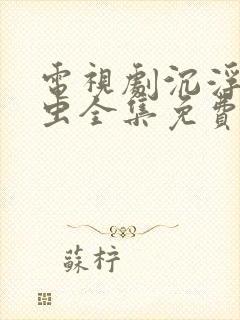 電視劇沉浮
虫全集免費
蘇梓